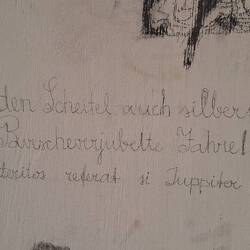 den Scheitel auch silbern
Burscherrjubelte Jahre!
teritos referat si Juppiter